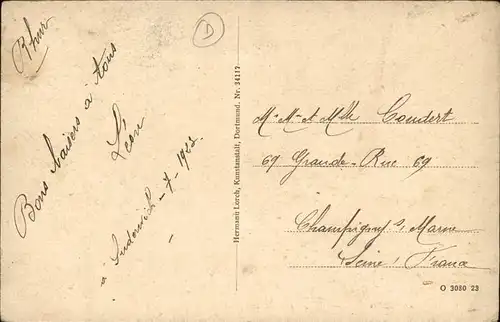 Rhur
D
Bons baisers à tous
Léon
- 7 - 192
Hermann Lorch, Kunstanstalt, Dortmund. Nr. 34117
Mr Mme et Mlle Coudert
69 Grande-Rue 69
Champigny s/ Marne
Seine, France
O 3080 23